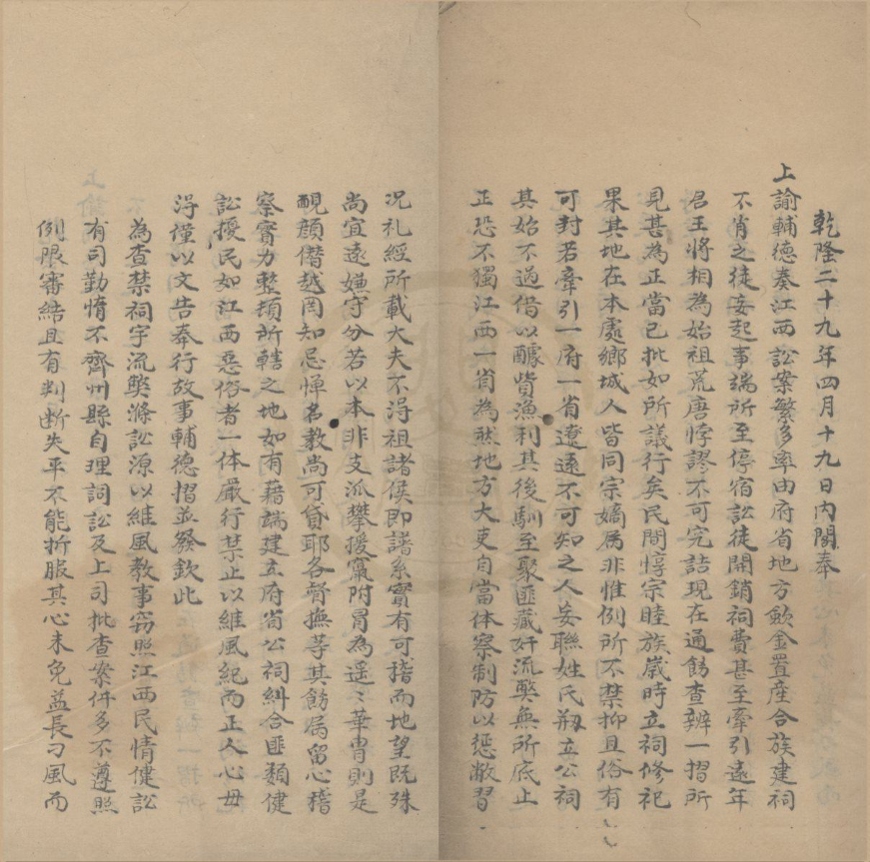 乾隆二十九年四月十九日內閣奉
上諭輔德奏江西訟案繁多率由府省地方歛金置産合族建祠
不肖之徒妄起事端所至停宿訟徒開銷祠費甚至牽引遠年
君王將相為始祖荒唐悖謬不可究詰現在通飭查辦一摺所
見甚為正當已批如所議行矣民間惇宗睦族歲時立祠修祀
果其地在本處鄉城人皆同宗嫡属非惟例所不禁抑且俗有
可封若牽引一府一省遼遠不可知之人妄聯姓氏剏立公祠
其始不過借以醵貲漁利其後馴至聚匪藏奸流獘無所底止
正恐不獨江西一省為然地方大吏自當体察制防以惩敝習
况礼經所載大夫不淂祖諸侯即譜系實有可稽而地望既殊
尚宜遠嫌守分若以本非支派攀援竄附冒為遥〻華胄則是
靦顔僣越罔知忌惮名教尚可貸耶各督撫等其飭属留心稽
察實力整頓所轄之地如有藉端建立府省公祠糾合匪類健
訟擾民如江西惡俗者一体嚴行禁止以維風紀而正人心毋
淂謹以文告奉行故事輔德摺並發欽此
為查禁祠宇流獘滌訟源以維風教事窃照江西民情健訟
有司勤惰不齊州縣自理詞訟及上司批查案件多不遵照
例限審結且有判断失平不能折服其心未免益長刁風而